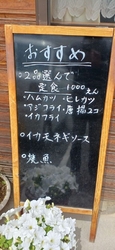 おすすめ
・2品選んで
定食 1000えん
・ハムカツ・ヒレカツ
・アジフライ・唐揚2コ
・イカフライ
・イカ天ネギソース
・焼魚